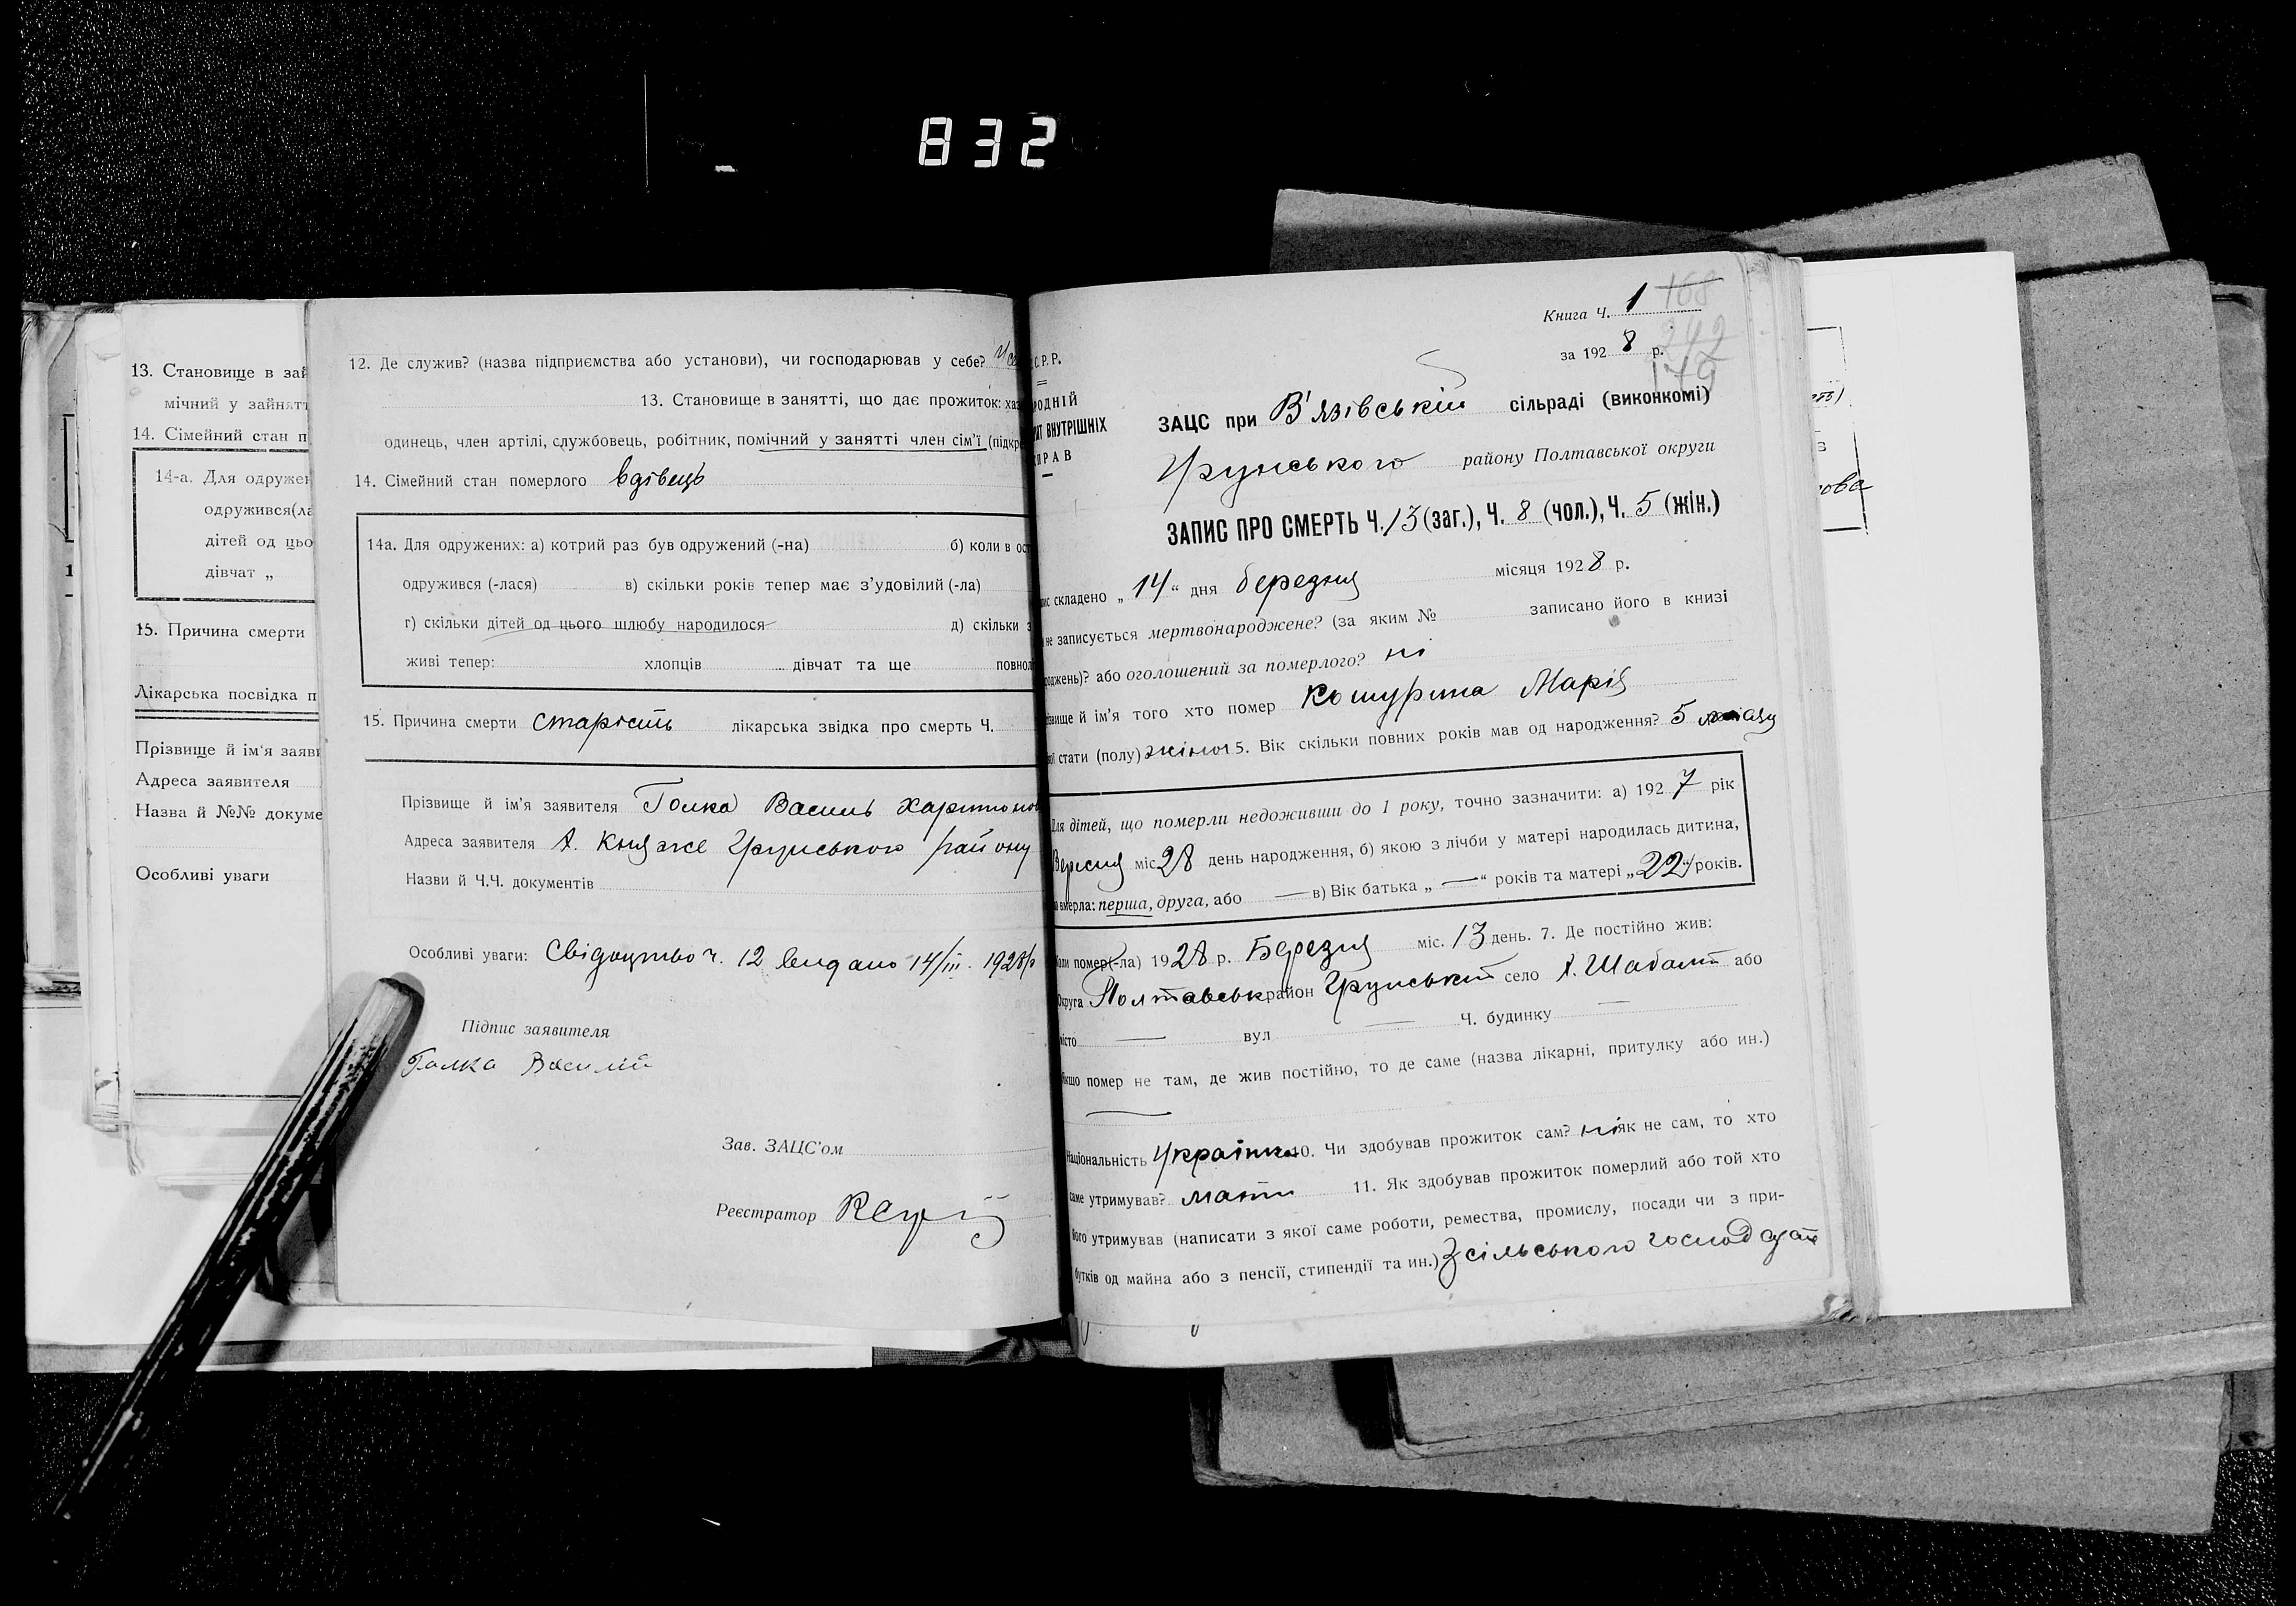 832
13. Становище в зай
мічний у занятт
14. Сімейний стан п
14-а. Для одружен
одружився(ла
дітей од цьо
дівчат „
15. Причина смерти
Лікарська посвідка п
Прізвище й ім'я заяви
Адреса заявителя
Назва й №№ докуме
Особливі уваги
12. Де служив? (назва підприємства або установи), чи господарював у себе?
13. Становище в занятті, що дає прожиток: хаз
одинець, член артілі, службовець, робітник, помічний у занятті член сім'ї (підкр
14. Сімейний стан померлого вдівець
14а. Для одружених: а) котрий раз був одружений (-на) б) коли в ост
одружився (-лася) в) скільки років тепер має з'удовілий (-ла)
г) скільки дітей од цього шлюбу народилося д) скільки з
живі тепер: хлопців дівчат та ще повнол
15. Причина смерти старість лікарська звідка про смерть Ч.
Прізвище й ім'я заявителя Голка Василь Харитонов
Адреса заявителя х. Княже Грунського району
Назви й Ч.Ч. документів
Особливі уваги: Свідоцтво ч. 12 видано 14/III. 1928 р
Підпис заявителя
Голка Василій
Зав. ЗАЦС'ом
Реєстратор
Книга Ч. 1 168
за 1928 р. 242
179
С.Р.Р.
РОДНІЙ
ІЯТ ВНУТРІШНІХ
СПРАВ
ЗАЦС при В'язівській сільраді (виконкомі)
Грунського району Полтавської округи
ЗАПИС ПРО СМЕРТЬ Ч. 13 (заг.), Ч. 8 (чол.), Ч. 5 (жін.)
ис складено „14“ дня березня місяця 1928 р.
и не записується мертвонароджене? (за яким № записано його в книзі
роджень)? або оголошений за померлого? ні
різвище й ім'я того хто помер Кошурина Марія
ої стати (полу) жіноч 5. Вік скільки повних років мав од народження? 5 місяц
Для дітей, що померли недоживши до 1 року, точно зазначити: а) 1927 рік
Вересня міс 28 день народження, б) якою з лічби у матері народилась дитина,
о вмерла: перша, друга, або — в) Вік батька „—“ років та матері „22“ років.
Коли помер(-ла) 1928 р. Березня міс. 13 день. 7. Де постійно жив:
Округа Полтавськ район Грунський село х. Шабалт або
місто — вул — Ч. будинку —
Якщо помер не там, де жив постійно, то де саме (назва лікарні, притулку або ин.)
Національність Українка 10. Чи здобував прожиток сам? ні як не сам, то хто
саме утримував? мати 11. Як здобував прожиток померлий або той хто
його утримував (написати з якої саме роботи, ремества, промислу, посади чи з при-
бутків од майна або з пенсії, стипендії та ин.) З сільського господ
ова